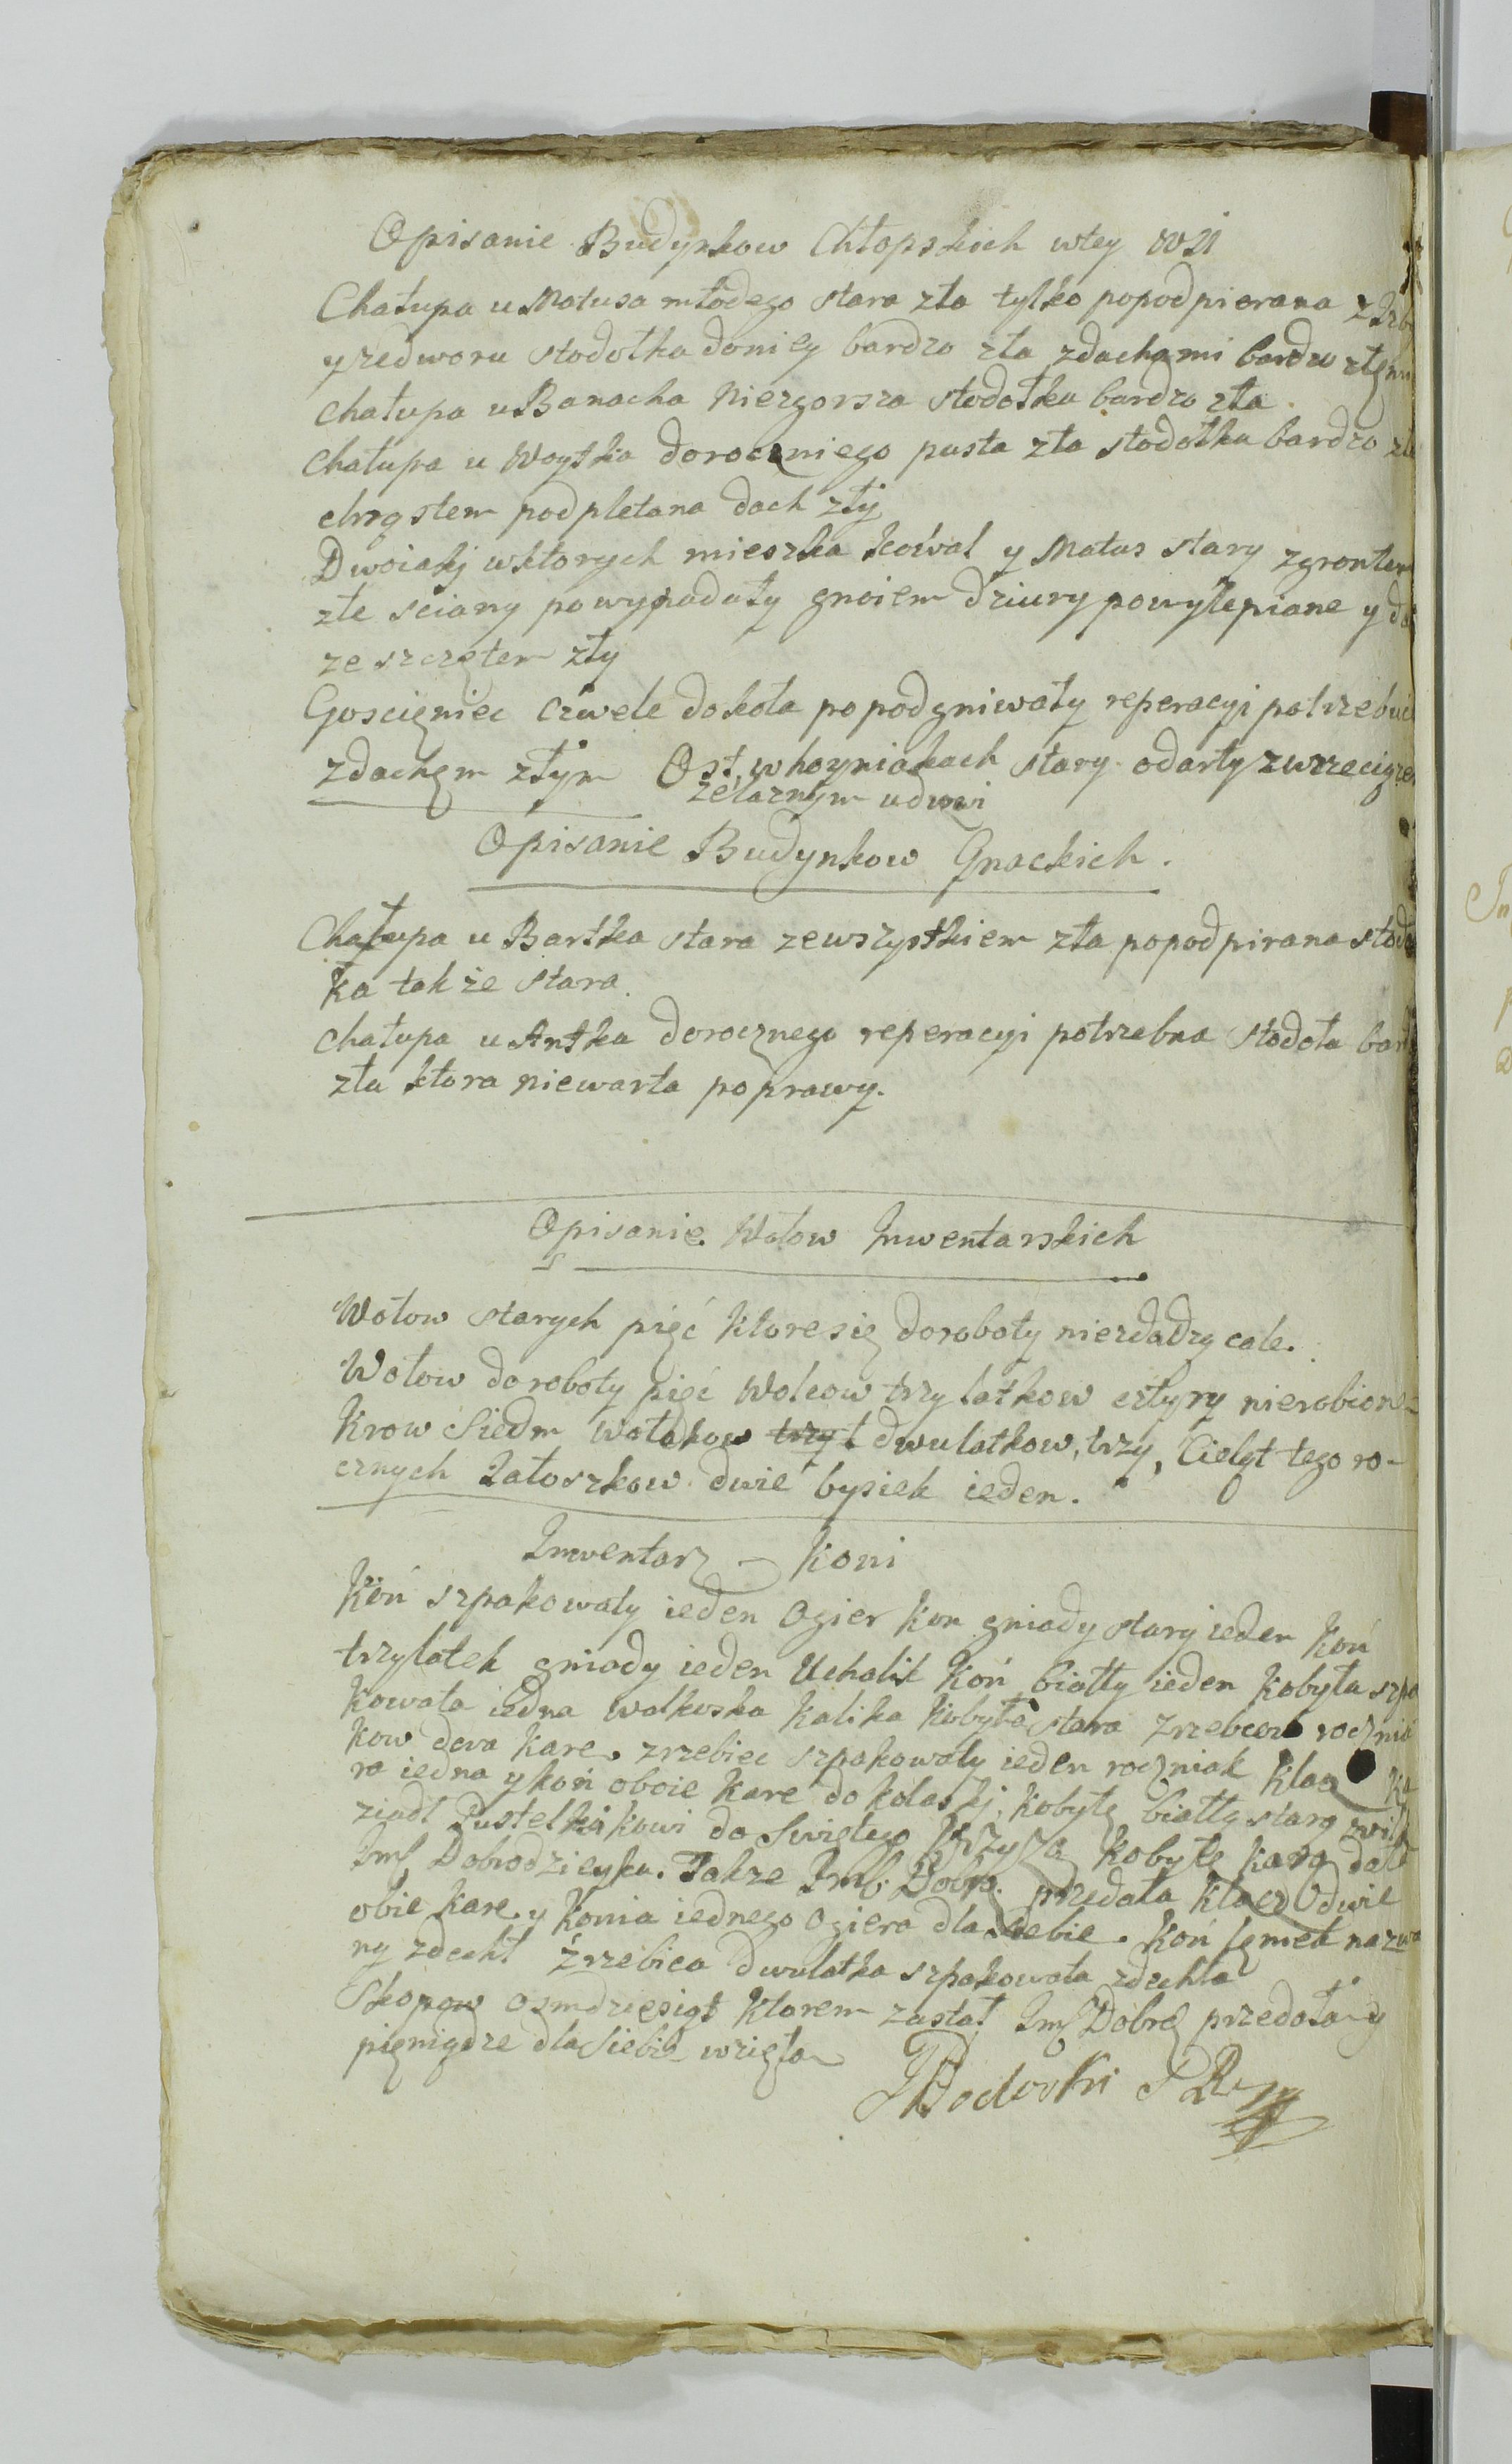 Opisanie Budynkow Chłopskich wtey wsi
Chałupa u Matusa młodego stara zła tylko popodpierana z Izb
y zedworu stodołka doniey bardzo zła zdachami bardzo złęmi
chałupa u Banacha Niezgorsza stodołka bardzo zła.
chałupa u Woytka doroczniego pusta zła stodołka bardzo zła
chrостem podpletana dach zły
Dwoiaki wktorych mieszka kowal y Matus stary zgrontem
złe sciany powypadały gnoiem dziury powylepiane y da
ze szczętem zły
Goscięniec czwele dokoła popodgniwały reperacyi potrzebuie
zdachęm złym Ost. whoyniakach stary odarty zwrzeciąze
zelaznym udrzwi
Opisanie Budynkow Gnackich.
Chałupa u Bartka stara zewszystkiem zła popodpirana stodo
ka także stara.
chałupa u Antka dorocznego reperacyi potrzebna stodoła bar
zła ktora niewarta poprawy.
Opisanie Wołow Inwentarskich
Wołow starych pięć ktoresię doroboty niezdadzą cale.
Wołow doroboty pięć Wolcow trzylatkow cztyry nierobione
Krow Siedm wołakow trzy dwulatkow, trzy, Cieląt tego ro-
cznych Jałoszkow dwie bysiek ieden.
Inwentarz Koni
Koń szpakowaty ieden Ogier Kon gniady stary ieden Koń
trzylatek gniady ieden Uchalik Koń biały ieden Kobyła szpa
kowata iedna wałkoska kalika Kobyła stara zrzebcow rocznia
kow dwa kare. zrzebiec szpakowaty ieden roczniak Klacz ka
ra iedna y koń oboie kare do kolaski, kobyłę białłą starą
ziadł Pustelnikowi do Swiętego Krzyża kobyłę karą dała
Jmć Dobrodzieyka. Także Jmć Dobro. przedała klacz dwie
obie kare. y Konia iednego Ogiera dla siebie. Koń nazwa
ny zdechł źrzebica dwulatka szpakowata zdechła
Skopow osmdziesiąt ktorem zastał Jmć Dobro przedała y
pieniądze dla Siebie wzięła